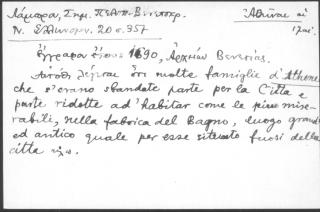 Λάμπρου, Σημ. Πελοπ. - Βενετοκρ. Ἀθῆναι αἱ
Ν. Ἑλληνομν. 20 σ. 357
Ἔγγραφα ἔτους 1690, Ἀρχείων Βενετίας.
Αὐτόθι λέγεται ὅτι molte famiglie d'Athene
che s'erano sbandate parte per la Citta e
parte ridotte ad'habitar come le piu mise-
rabili, nella fabrica del Bagno, luogo grande
ed antico quale per esse situato fuosi della
citta κλπ.